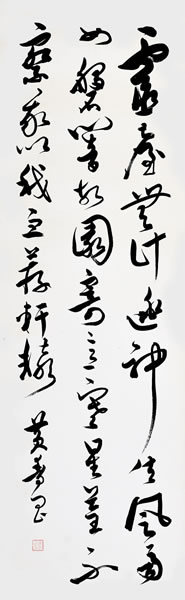 靈臺無計逃神矢風雨
如磐闇故園寄意寒星荃不
察我以我血薦軒轅 黄